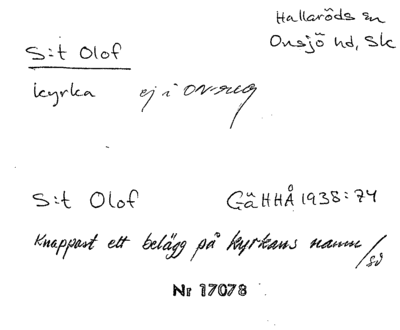 Hallaröds sn
Onsjö hd, Sk
S:t Olof
kyrka ej i ON-reg
S:t Olof GäHHÅ 1938:74
Knappast ett belägg på kyrkans namn
Nr 17078